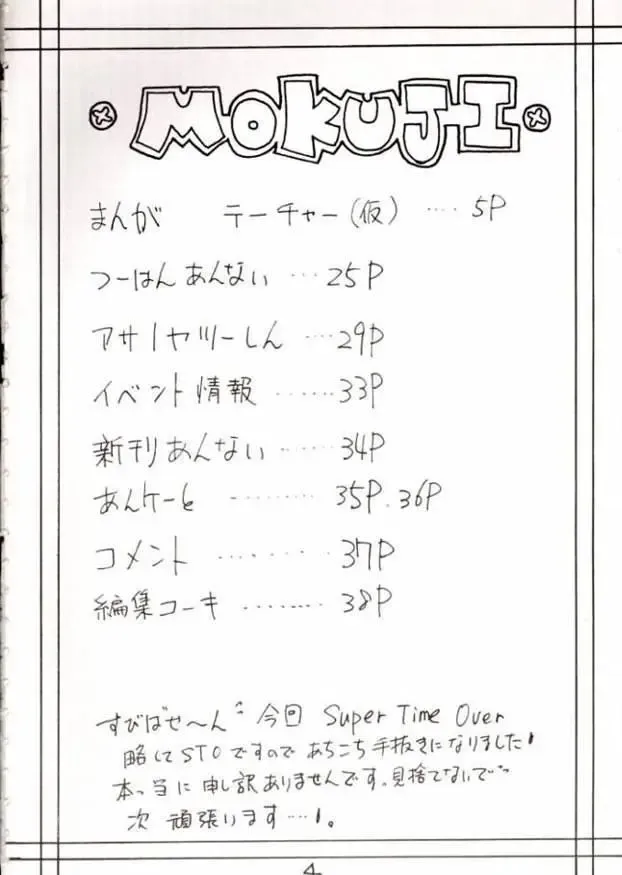 MOKUJI
まんが テーチャー(仮) ････ 5P
つーはんあんない ････ 25P
アサノヤツーしん ････ 29P
イベント情報 ･･････ 33P
新刊あんない ･･････ 34P
あんケーと ･･････････ 35P.36P
コメント ･･････････ 37P
編集コーキ ････････ 38P
すびばせ〜ん 今回 Super Time Over
略してSTOですのであちこち手抜きになりました!
本っ当に申し訳ありませんです。見捨てないで
次 頑張います…!。
4